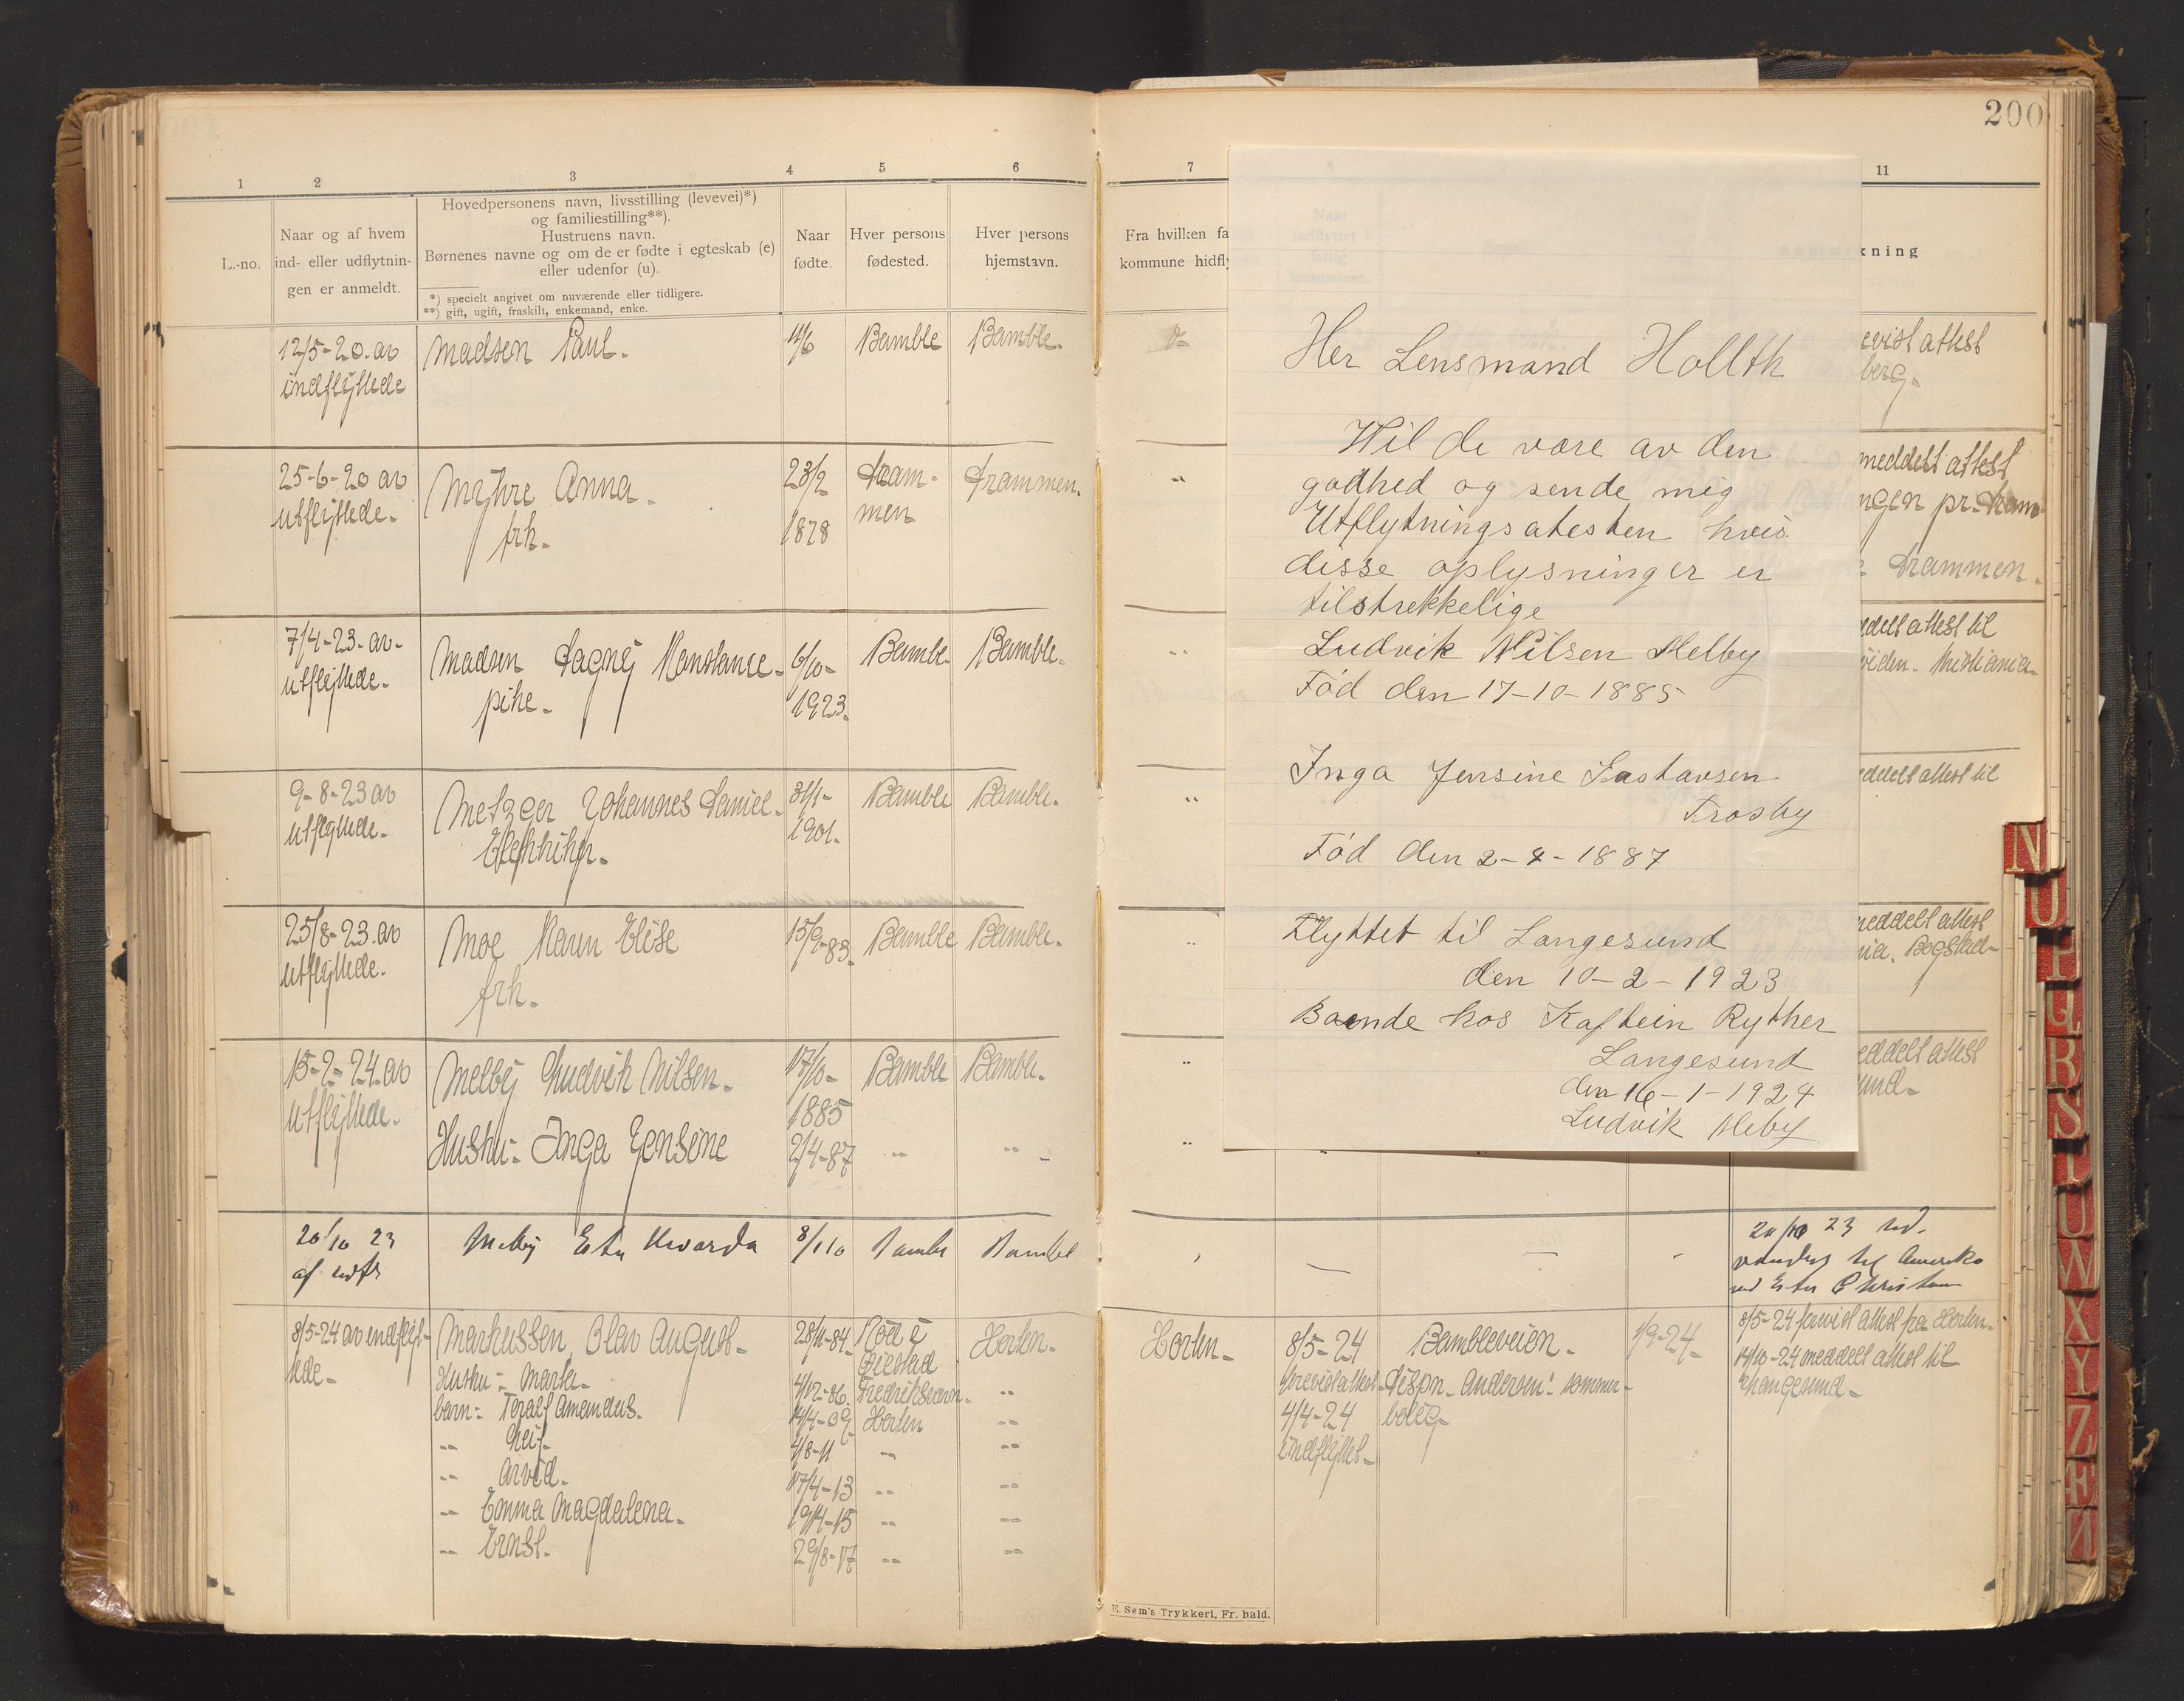 200
1 2 3 4 5 6 7 11
L.-no.
Naar og af hvem
ind- eller udflytnin-
gen er anmeldt.
Hovedpersonens navn, livsstilling (levevei)*)
og familiestilling**).
Hustruens navn.
Børnenes navne og om de er fødte i egteskab (e)
eller udenfor (u).
*) specielt angivet om nuværende eller tidligere.
**) gift, ugift, fraskilt, enkemand, enke.
Naar
fødte.
Hver persons
fødested.
Hver persons
hjemstavn.
Fra hvilken fa
kommune hidfly
kning
12/5-20. av Madsen Paul. 4/6 Bamble Bamble.
indflyttede
evist attest
berg.
25-6-20 av Myhre Anna. 23/2 Dram- Drammen. "
utflyttede. frk. 1878 men
meddelt attest
ngen pr. Dram
Drammen.
7/4-23. av Madsen Dagny Konstance. 6/10- Bamble Bamble. "
utflyttede. pike. 1923.
eddelt attest til
veien. Kristiania
9-8-23 av Metzger Johannes Daniel. 31/1- Bamble Bamble. "
utflyttede. 1901.
eddelt attest til
25/8-23. av Moe Karen Elise 15/9-83. Bamble Bamble. "
utflyttede. frk.
meddelt attest
nia. Bogstad-
15-2-24. av Melby Ludvik Nilsen. 17/10- Bamble Bamble. "
utflyttede. 1885
Hustru: Inga Jensine 2/4-87 " " "
eddelt attest
und.
20/10 23 Melby Ester 8/1 10 Bamble Bamble
af udfl
20/10 23 ud.
vandret til Amerika
8/5-24 av indflyt- Markussen, Olav August. 28/11-84. Född i Horten. Horten. 8/5-24 Bambleveien. 1/9-24.
tede. Øiestad
Hustru: Marta. 4/12-86. Fredriksværn. " forevist attest. Dispn. Andersens sommer-
barn: Toralf Amandus. 14/4-09. Horten. " 4/4-24 bolig.
" Leif. 4/8-11 " " indflyttet.
" Arvid. 17/4-13 " "
" Emma Magdalena. 19/4-15 " "
" Ernst. 29/8-17 " "
8/5-24 forevist attest fra Horten.
14/10-24 meddelt attest til
Langesund.
E. Sem's Trykkeri, Fr. hald.
Her Lensmand Hollth
Wil de være av den
godhed og sende mig
Utflytningsatesten hvis
disse oplysninger er
tilstrekkelige
Ludvik Nilsen Melby
Fød den 17-10-1885
Inga Jensine Gustavsen
Trosby
Fød den 2-4-1887
Flyttet til Langesund
den 10-2-1923
Boende hos Kaftein Ryther
Langesund
den 16-1-1924
Ludvik Melby
N
O
P
Q
R
S
T
U
W
X
Y
Z
Æ
Ø